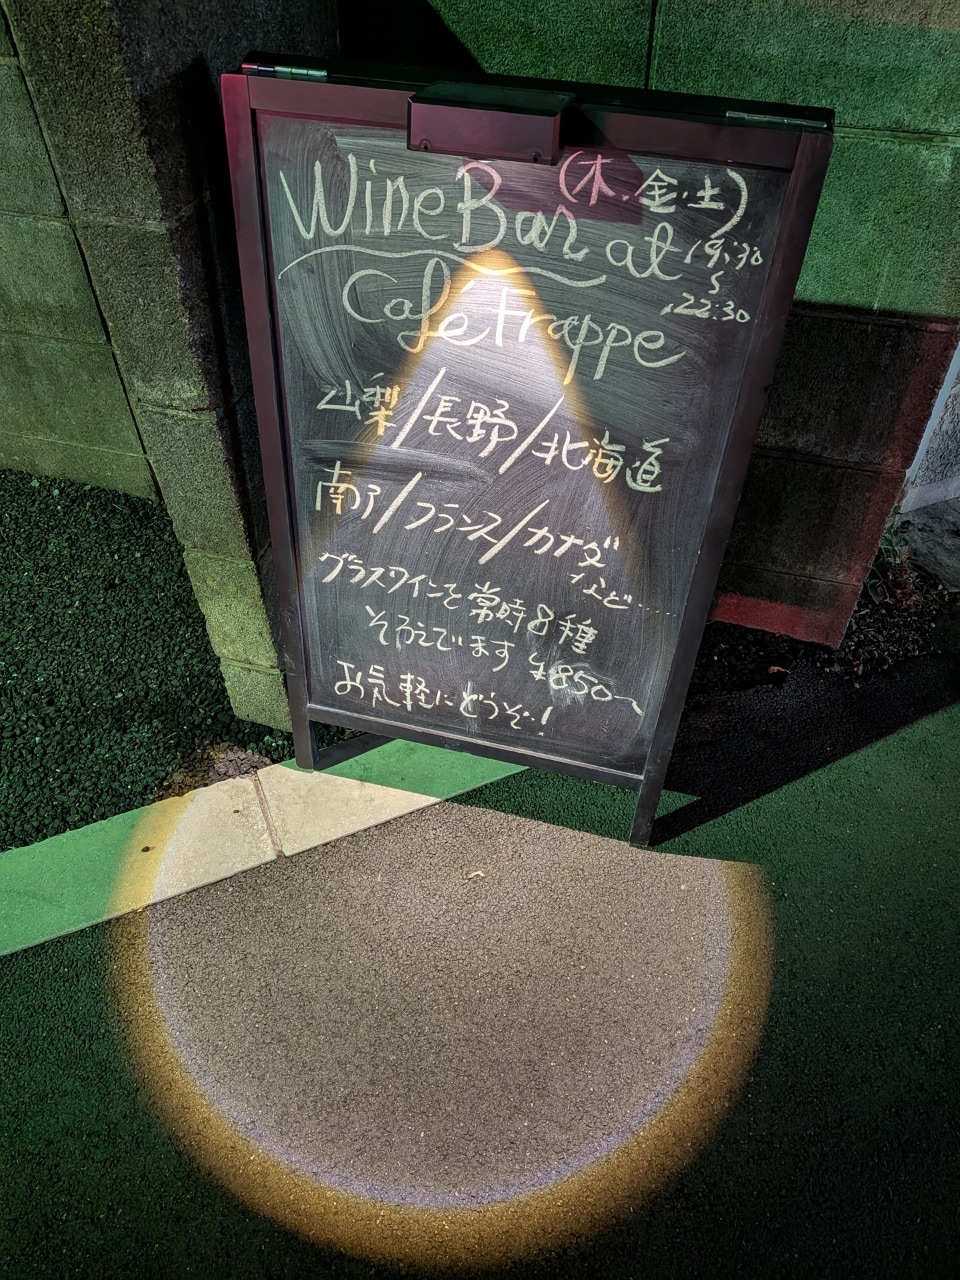 Wine Bar (木.金.土)
at 19:30
〜
22:30
Café Frappe
山梨/長野/北海道
南ア/フランス/カナダ
など……
グラスワインを常時8種
そろえています ¥850〜
お気軽にどうぞ!